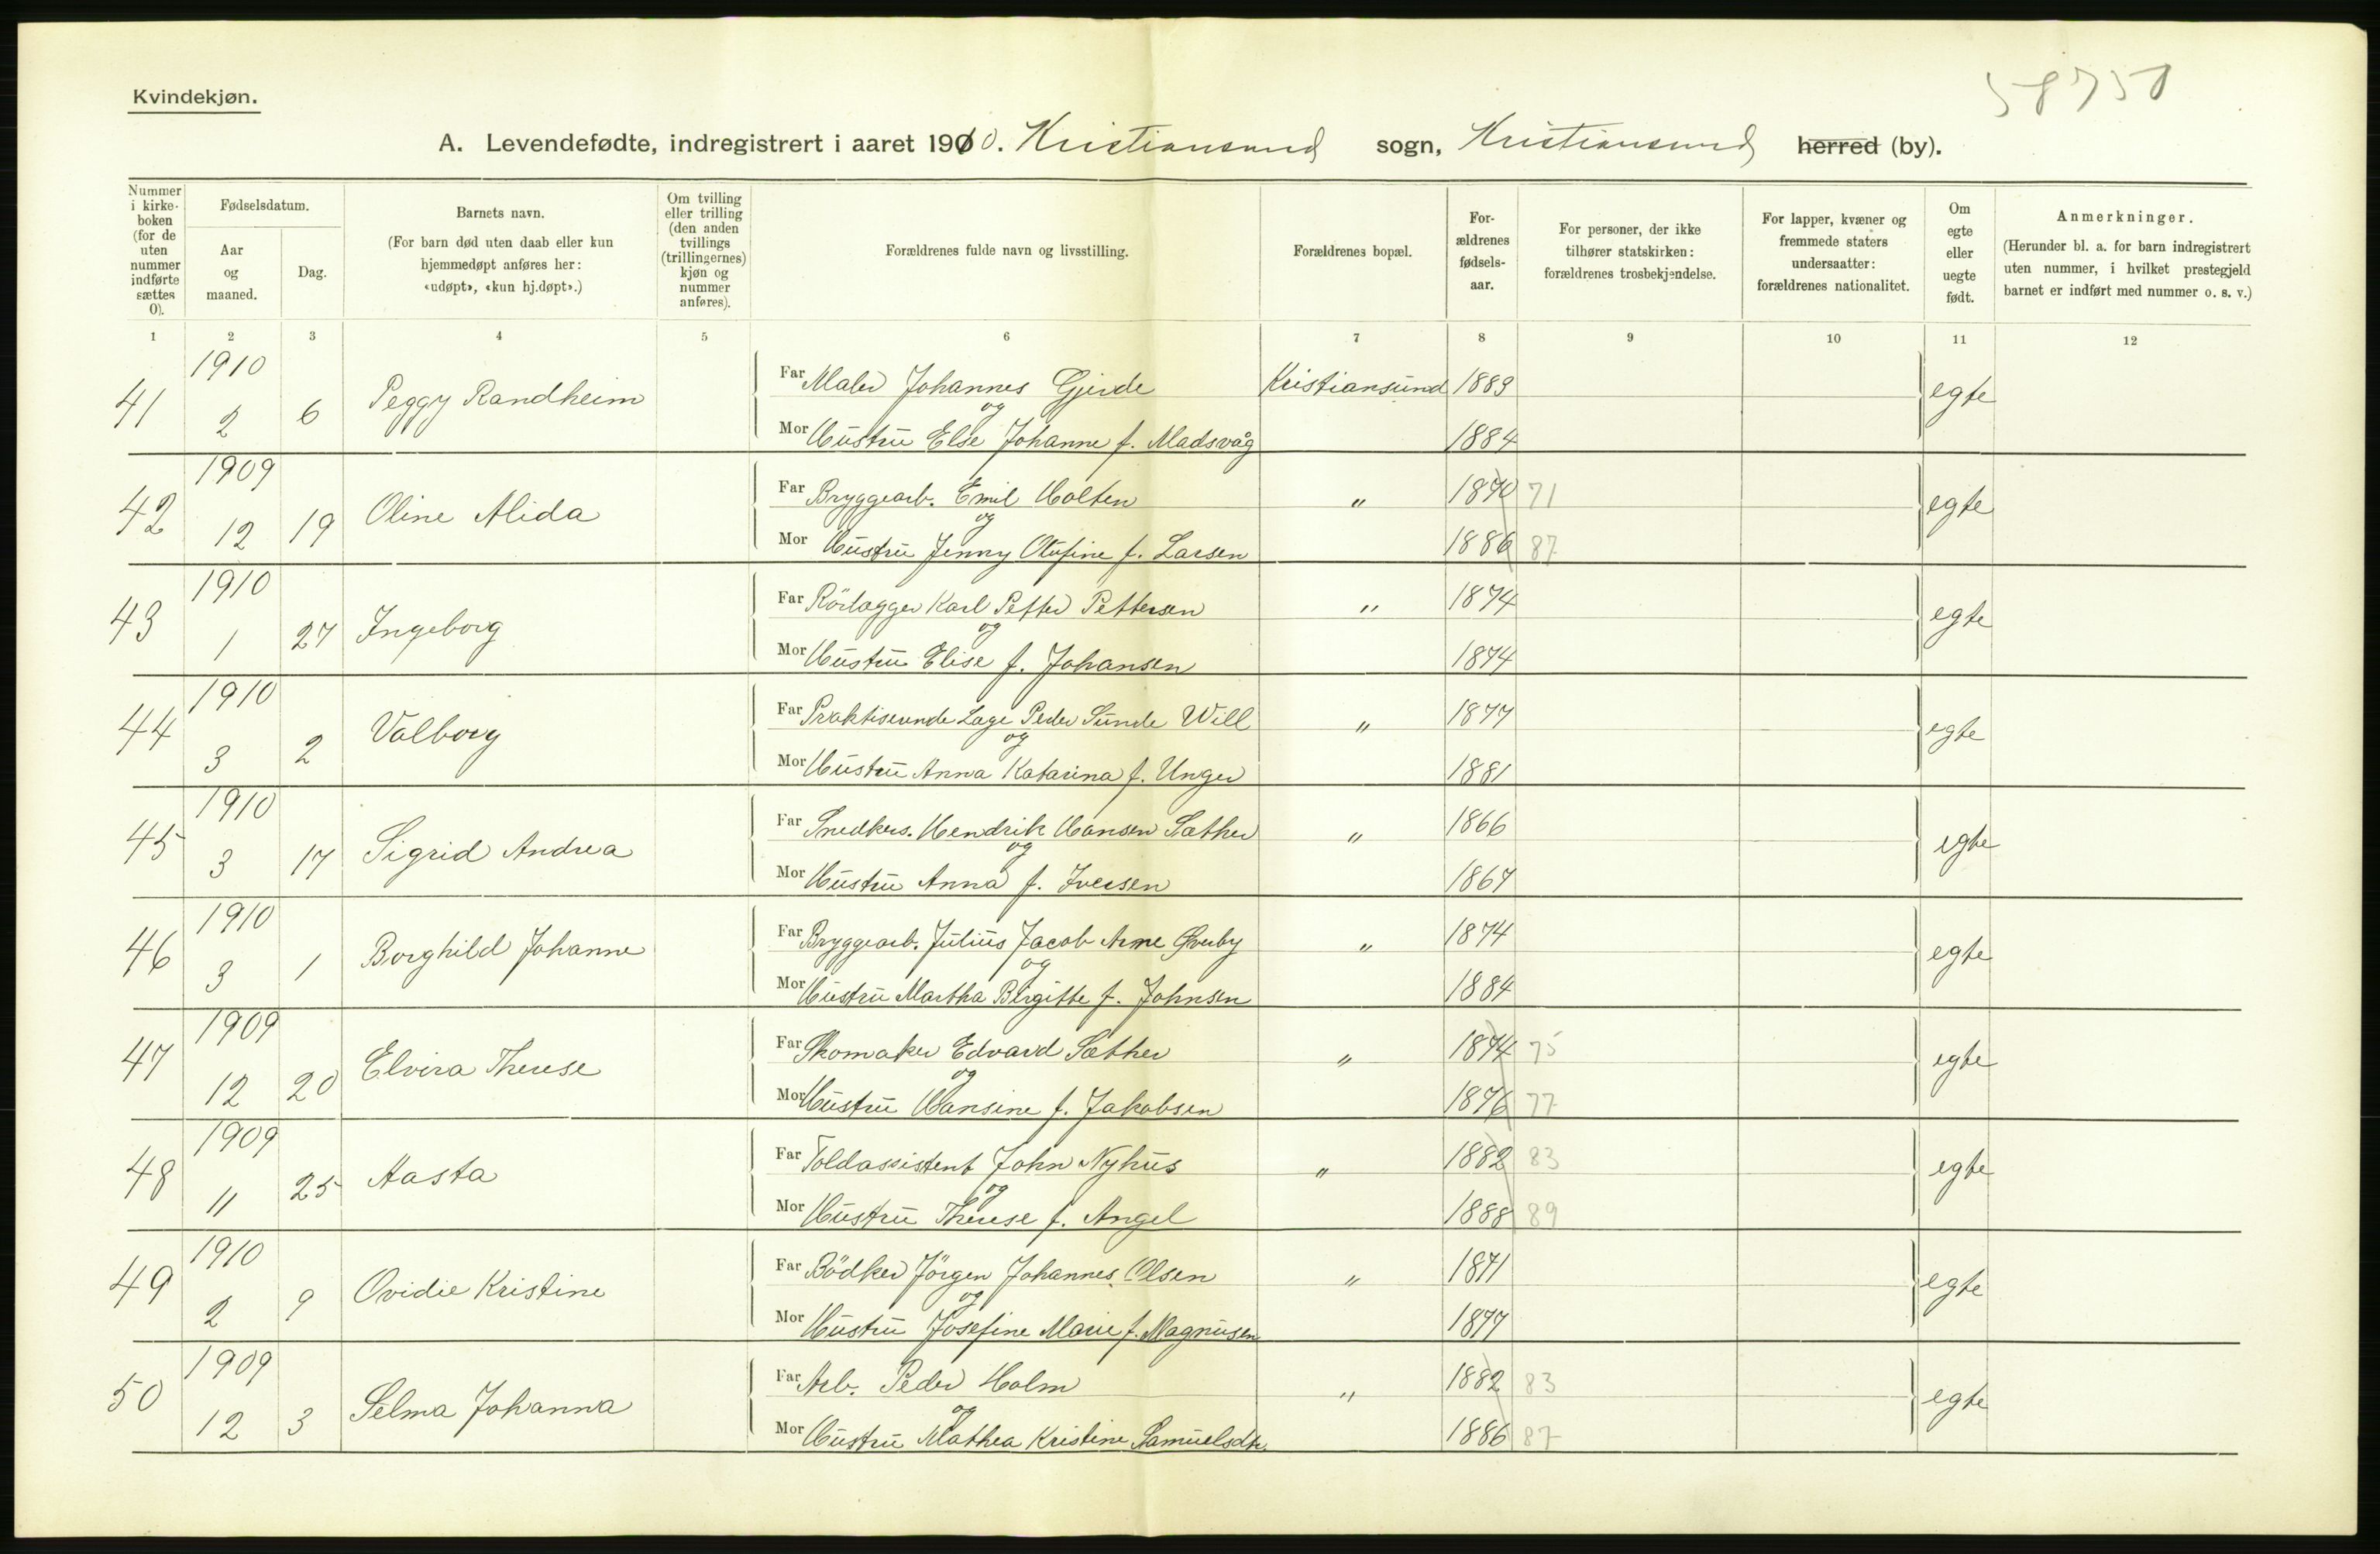 58750
Kvindekjøn.
A. Levendefødte, indregistrert i aaret 1910. Kristiansund sogn, Kristiansund herred (by).
Nummer i kirkeboken (for de uten nummer indførte sættes 0).
Fødselsdatum.
Aar og maaned.
Dag.
Barnets navn.
(For barn død uten daab eller kun hjemmedøpt anføres her: «udøpt», «kun hj.døpt».)
Om tvilling eller trilling (den anden tvillings (trillingernes) kjøn og nummer anføres).
Forældrenes fulde navn og livsstilling.
Forældrenes bopæl.
Forældrenes fødselsaar.
For personer, der ikke tilhører statskirken: forældrenes trosbekjendelse.
For lapper, kvæner og fremmede staters undersaatter: forældrenes nationalitet.
Om egte eller uegte født.
Anmerkninger.
(Herunder bl. a. for barn indregistrert uten nummer, i hvilket prestegjeld barnet er indført med nummer o. s. v.)
1 2 3 4 5 6 7 8 9 10 11 12
41 1910 2 6 Peggy Randheim
Far Maler Johannes Gjerde Kristiansund 1883 egte
og
Mor Hustru Else Johanne f. Madsvåg 1884
42 1909 12 19 Oline Alida
Far Bryggearb. Emil Holten " 1870 71 egte
og
Mor Hustru Jenny Olufine f. Larsen 1886 87
43 1910 1 27 Ingeborg
Far Rörlægger Karl Petter Pettersen " 1874 egte
og
Mor Hustru Elise f. Johansen 1874
44 1910 3 2 Valborg
Far Praktiserende Læge Peder Sunde Will " 1877 egte
og
Mor Hustru Anna Katarina f. Unger 1881
45 1910 3 17 Sigrid Andrea
Far Snedkers. Hendrik Hansen Sæther " 1866 egte
og
Mor Hustru Anna f. Iversen 1867
46 1910 3 1 Borghild Johanne
Far Bryggearb. Julius Jacob Arne " 1874 egte
og
Mor Hustru Martha Birgitte f. Johnsen 1884
47 1909 12 20 Elvira Therese
Far Skomaker Edvard Sæther " 1874 75 egte
og
Mor Hustru Hansine f. Jakobsen 1876 77
48 1909 11 25 Aasta
Far Toldassistent John Nyhus " 1882 83 egte
og
Mor Hustru Therese f. Angel 1888 89
49 1910 2 9 Ovidie Kristine
Far Bödker Jörgen Johannes Olsen " 1871 egte
og
Mor Hustru Josefine Marie f. Magnusen 1877
50 1909 12 3 Selma Johanna
Far Arb. Peder Holm " 1882 83 egte
og
Mor Hustru Mathea Kristine Samuelsdtr. 1886 87